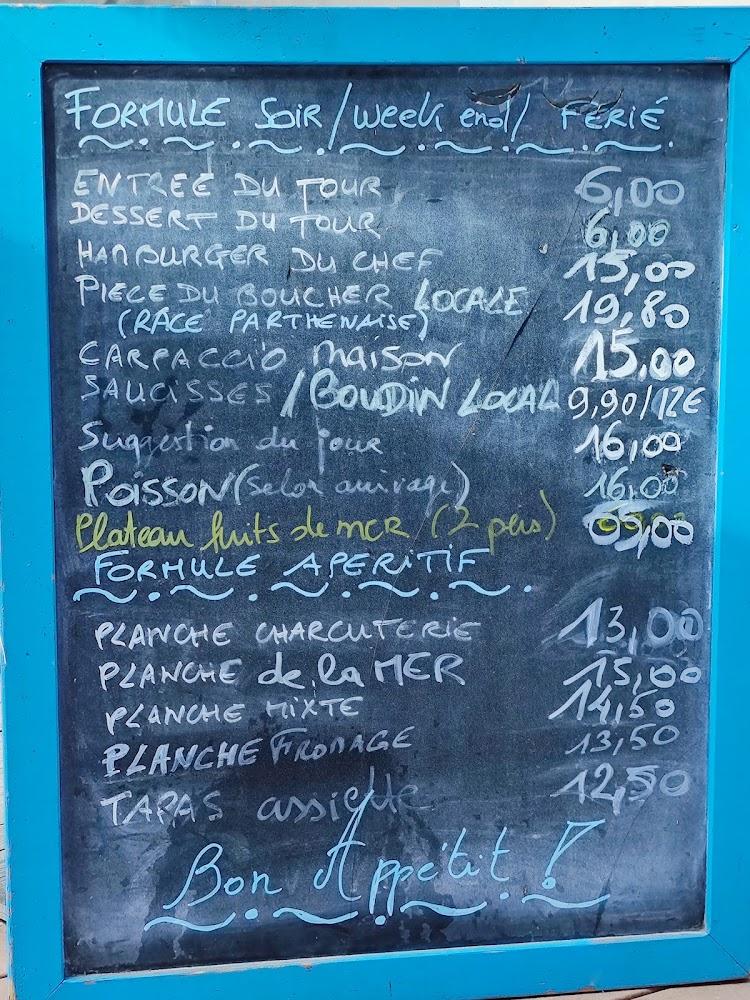 FORMULE SOIR / week end / FERIÉ
ENTREE DU JOUR 6,00
DESSERT DU JOUR 6,00
HAMBURGER DU CHEF 15,00
PIECE DU BOUCHER LOCALE 19,80
(RACE PARTHENAISE)
CARPACCIO MAISON 15,00
SAUCISSES / BOUDIN LOCAL 9,90/12€
Suggestion du jour 16,00
POISSON (selon arrivage) 16,00
Plateau fruits de mer (2 pers) 65,00
FORMULE APERITIF
PLANCHE CHARCUTERIE 13,00
PLANCHE de la MER 15,00
PLANCHE MIXTE 14,50
PLANCHE FROMAGE 13,50
TAPAS assiette 12,50
Bon Appétit !